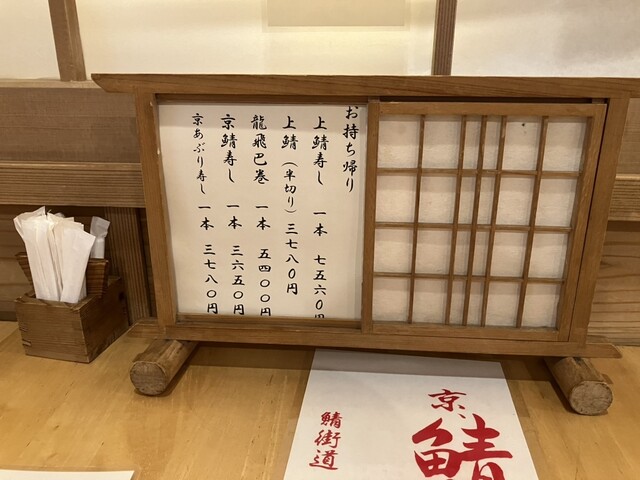 お持ち帰り
上鯖寿し 一本 七五六〇円
上鯖(半切り)三七八〇円
龍飛巴巻 一本 五四〇〇円
京鯖寿し 一本 三六五〇円
京あぶり寿し 一本 三七八〇円
京、
鯖
鯖街道